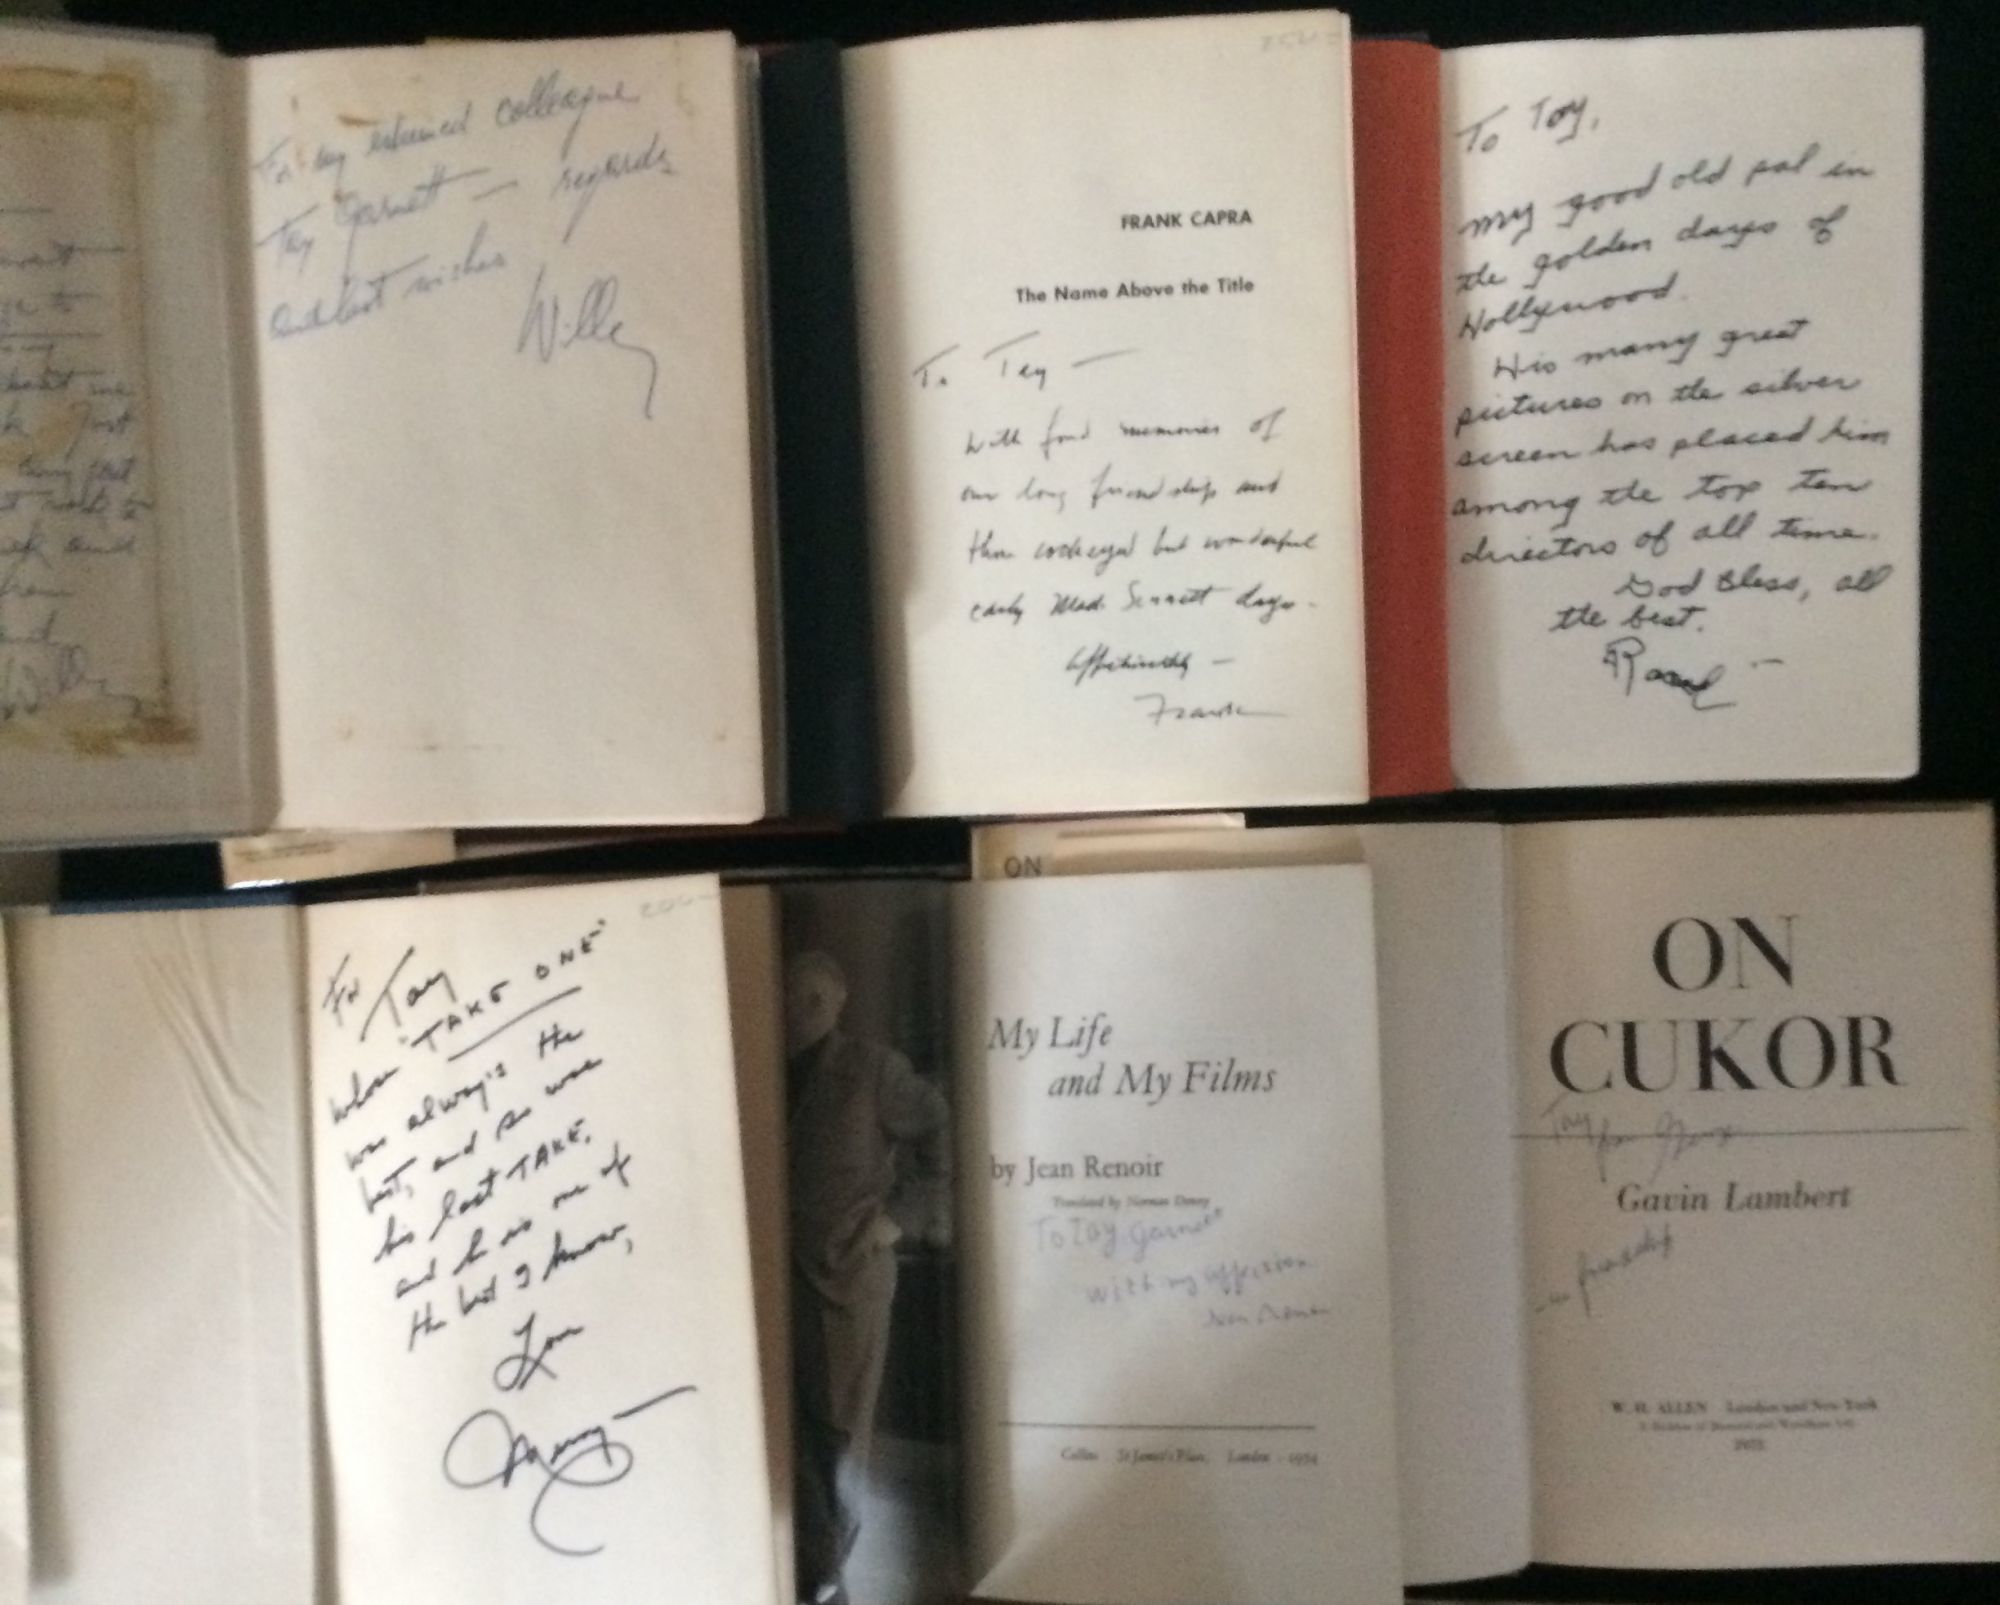 Just
Willy
To my esteemed colleague
Tay Garnett — regards
and best wishes
Willy
FRANK CAPRA
The Name Above the Title
To Tay —
With fond memories of
our long friendship and
those cockeyed but wonderful
early Mack Sennett days.
Affectionately —
Frank
To Tay,
My good old pal in
the golden days of
Hollywood.
His many great
pictures on the silver
screen has placed him
among the top ten
directors of all time.
God Bless, all
the best.
Raoul —
For Tay
whose "TAKE ONE"
was always the
best, and so was
his last TAKE,
and he is one of
the best I know,
Love
ON
My Life
and My Films
by Jean Renoir
Translated by Norman Denny
To Tay Garnett
with my affection
Jean Renoir
Collins St James's Place, London 1974
ON
CUKOR
Tay from George
Gavin Lambert
friendship
W. H. ALLEN London and New York